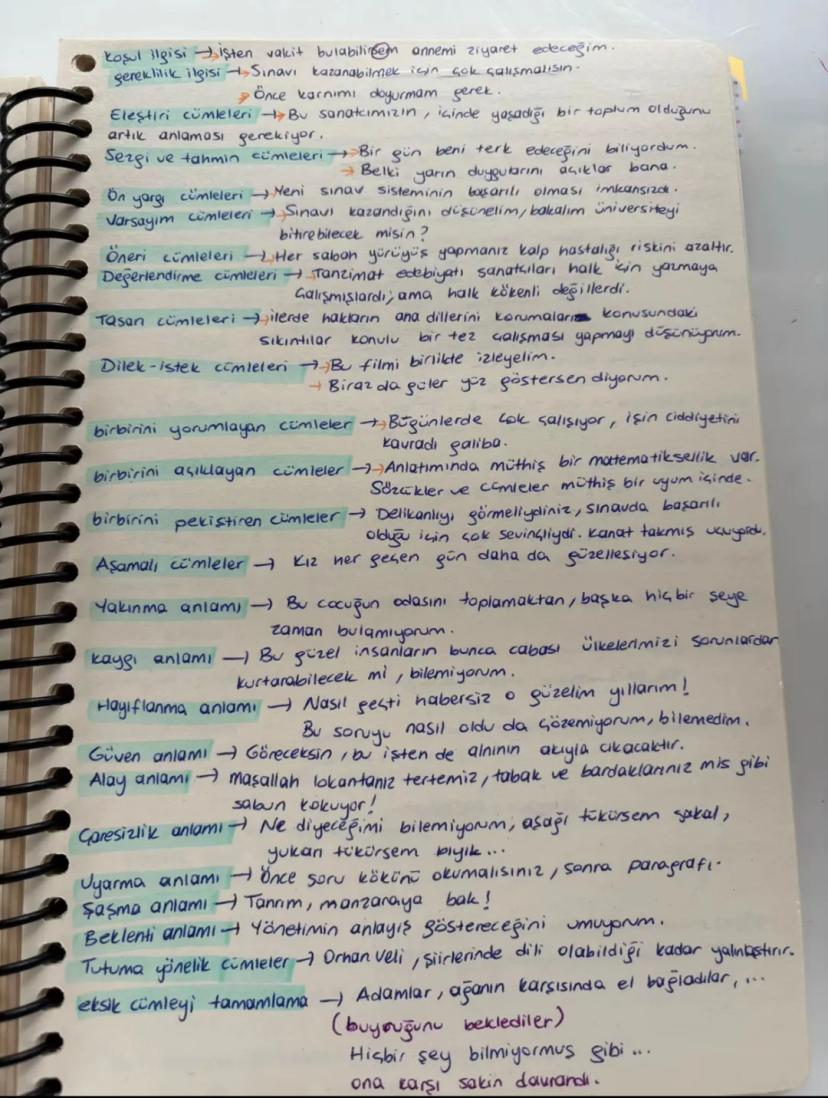 Koşul ilgisi → işten vakit bulabilirsem annemi ziyaret edeceğim.
gereklilik ilgisi → Sınavı kazanabilmek için çok çalışmalısın.
→ Önce karnımı doyurmam gerek.
Eleştiri cümleleri → Bu sanatçımızın, içinde yaşadığı bir toplum olduğunu
artık anlaması gerekiyor.
Sezgi ve tahmin cümleleri → Bir gün beni terk edeceğini biliyordum.
→ Belki yarın duygularını açıklar bana.
Ön yargı cümleleri → Yeni sınav sisteminin başarılı olması imkansızdı.
Varsayım cümleleri → Sınavı kazandığını düşünelim, bakalım üniversiteyi
bitirebilecek misin?
Öneri cümleleri → Her sabah yürüyüş yapmanız kalp hastalığı riskini azaltır.
Değerlendirme cümleleri → Tanzimat edebiyatı sanatçıları halk için yazmaya
çalışmışlardı, ama halk kökenli değillerdi.
Tasarı cümleleri → ilerde hakların ana dillerini korumaları konusundaki
sıkıntılar konulu bir tez çalışması yapmayı düşünüyorum.
Dilek-istek cümleleri → Bu filmi birlikte izleyelim.
→ Biraz da güler yüz göstersen diyorum.
birbirini yorumlayan cümleler → Bugünlerde çok çalışıyor, işin ciddiyetini
kavradı galiba.
birbirini açıklayan cümleler → Anlatımında müthiş bir matematiksellik var.
Sözcükler ve cümleler müthiş bir uyum içinde.
birbirini pekiştiren cümleler → Delikanlıyı görmeliydiniz, sınavda başarılı
olduğu için çok sevinçliydi. Kanat takmış uçuyordu.
Aşamalı cümleler → Kız her geçen gün daha da güzelleşiyor.
Yakınma anlamı → Bu çocuğun odasını toplamaktan, başka hiçbir şeye
zaman bulamıyorum.
kaygı anlamı → Bu güzel insanların bunca çabası ülkelerimizi sorunlardan
kurtarabilecek mi, bilemiyorum.
Hayıflanma anlamı → Nasıl geçti habersiz o güzelim yıllarım!
Bu soruyu nasıl oldu da çözemiyorum, bilemedim.
Güven anlamı → Göreceksin, bu işten de alnının akıyla çıkacaktır.
Alay anlamı → maşallah lokantanız tertemiz, tabak ve bardaklarınız mis gibi
sabun kokuyor!
Çaresizlik anlamı → Ne diyeceğimi bilemiyorum, aşağı tükürsem sakal,
yukarı tükürsem bıyık...
Uyarma anlamı → Önce soru kökünü okumalısınız, sonra paragrafı.
Şaşma anlamı → Tanrım, manzaraya bak!
Beklenti anlamı → Yönetimin anlayış göstereceğini umuyorum.
Tutuma yönelik cümleler → Orhan Veli, şiirlerinde dili olabildiği kadar yalınlaştırır.
eksik cümleyi tamamlama → Adamlar, ağanın karşısında el bağladılar, ...
(buyruğunu beklediler)
Hiçbir şey bilmiyormuş gibi ...
ona karşı sakin davrandı.